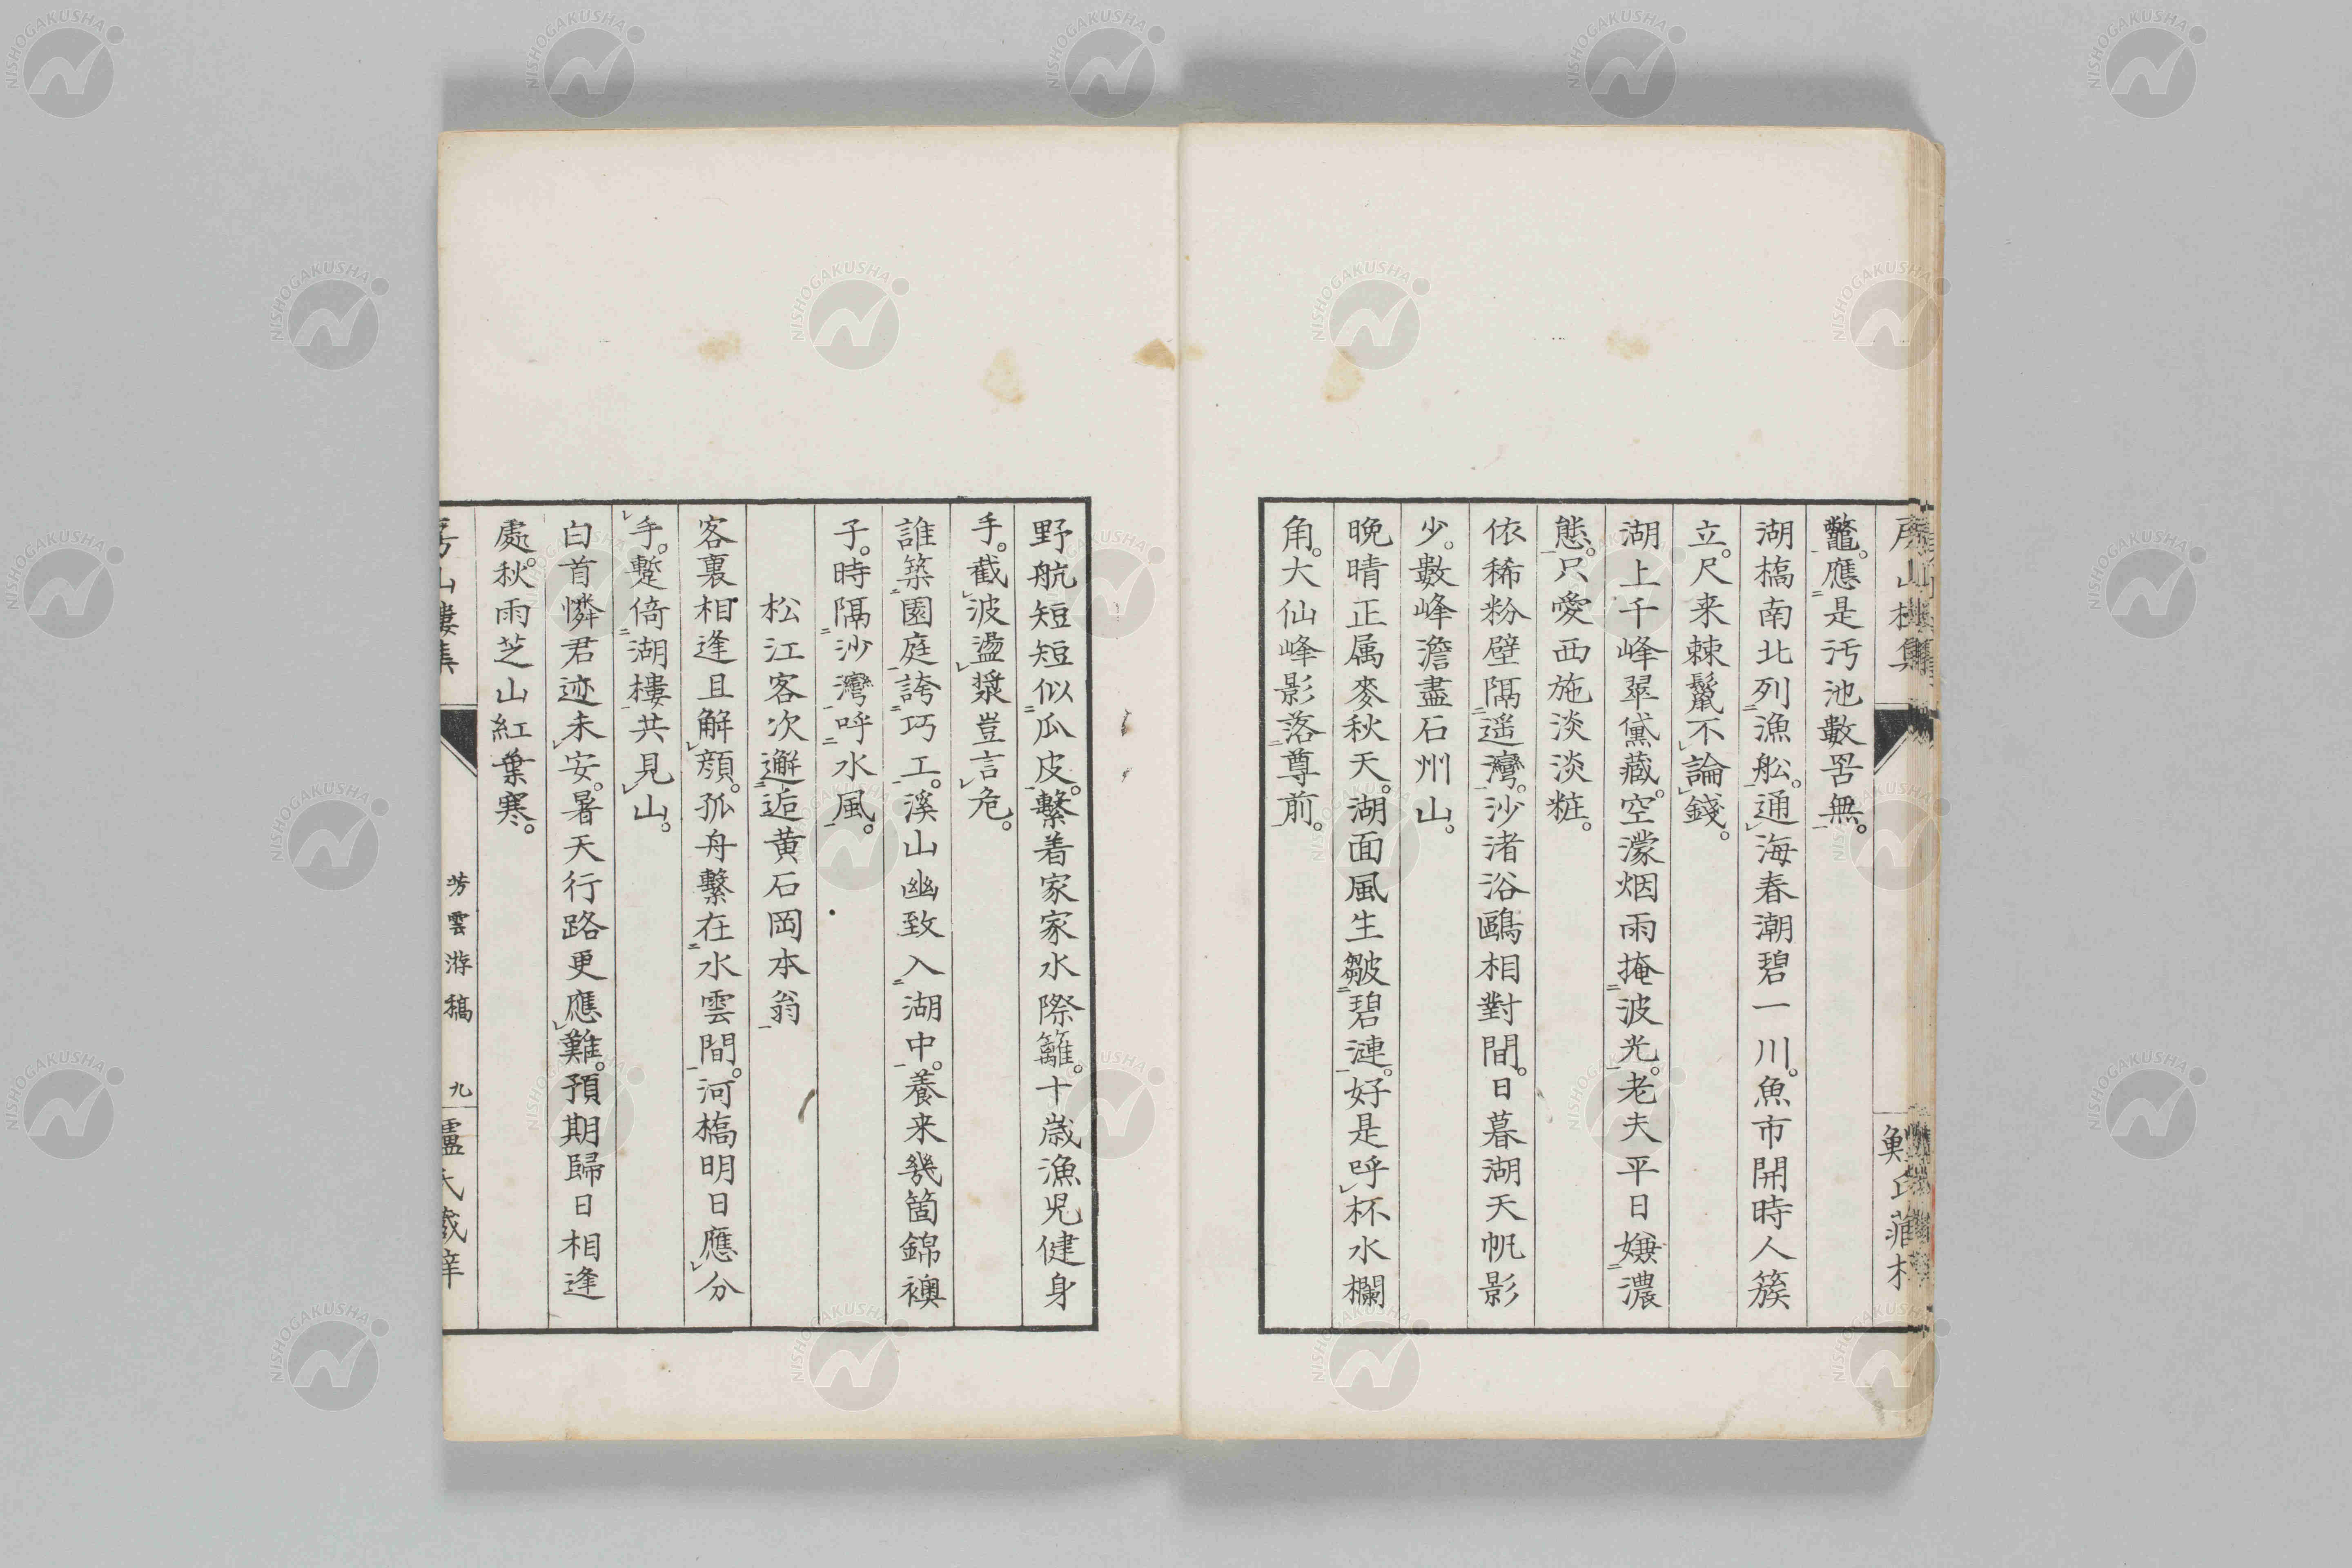 鼈。應是汚池數罟無。
湖槗南北列漁舩。通海春潮碧一川。魚市開時人簇
立。尺来棘鬣不論錢。
湖上千峰翠黛藏。空濛烟雨掩波光。老夫平日嫌濃
態。只愛西施淡淡粧。
依稀粉壁隔遥灣。沙渚浴鷗相對間。日暮湖天帆影
少。數峰澹盡石州山。
晩晴正属麥秋天。湖面風生皺碧漣。好是呼杯水欄
角。大仙峰影落尊前。
野航短短似瓜皮。繫着家家水際籬。十歳漁児健身
手。截波盪漿豈言危。
誰築園庭誇巧工。溪山幽致入湖中。養来幾箇錦襖
子。時隔沙灣呼水風。
松江客次邂逅黄石岡本翁
客裏相逢且解顔。孤舟繫在水雲間。河槗明日應分
手。蹔倚湖樓共見山。
白首憐君迹未安。暑天行路更應難。預期歸日相逢
處。秋雨芝山紅葉寒。
山樓集
芳雲游稿
九
NISHOGAKUSHA